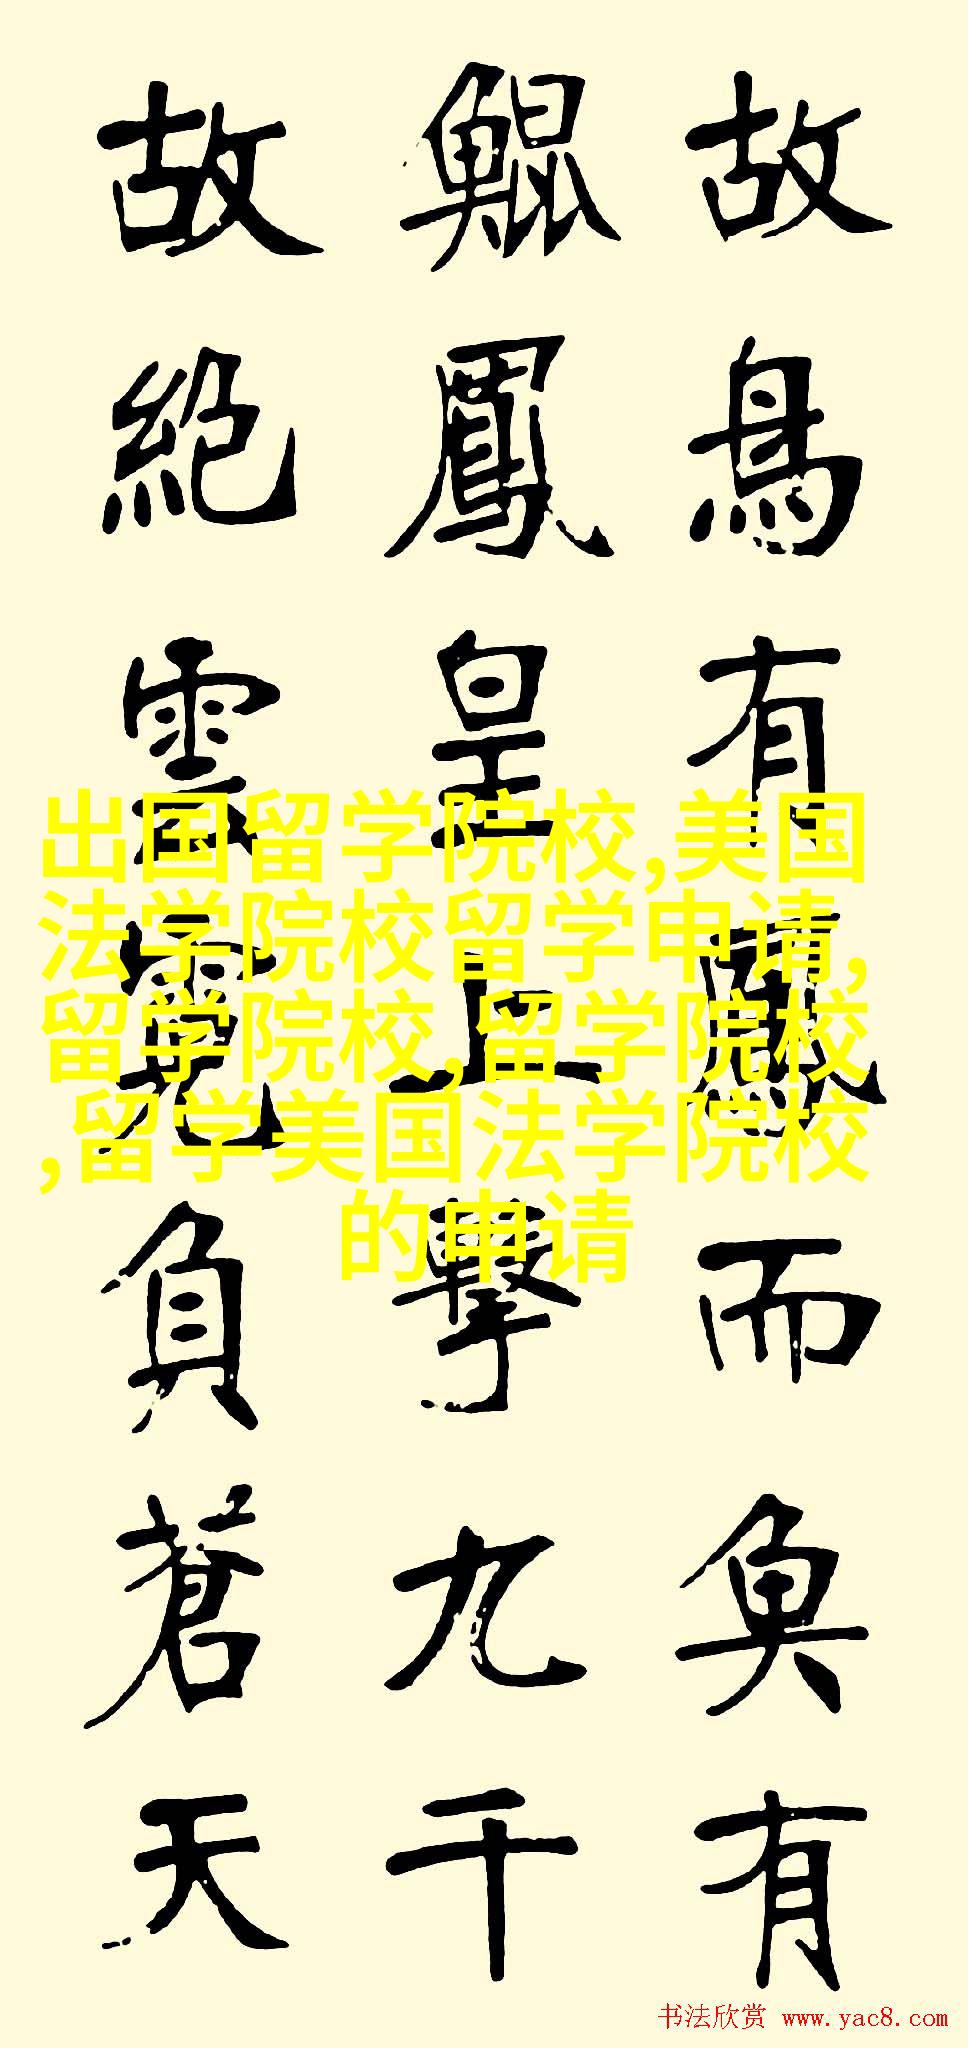 故鳥有鳳而魚有
鯤鳳皇上擊九千
故絕雲霓負蒼天
出国留学院校,美国
法学院校留学申请,
留学院校,留学院校
,留学美国法学院校
的申请
书法欣赏 www.yac8.com